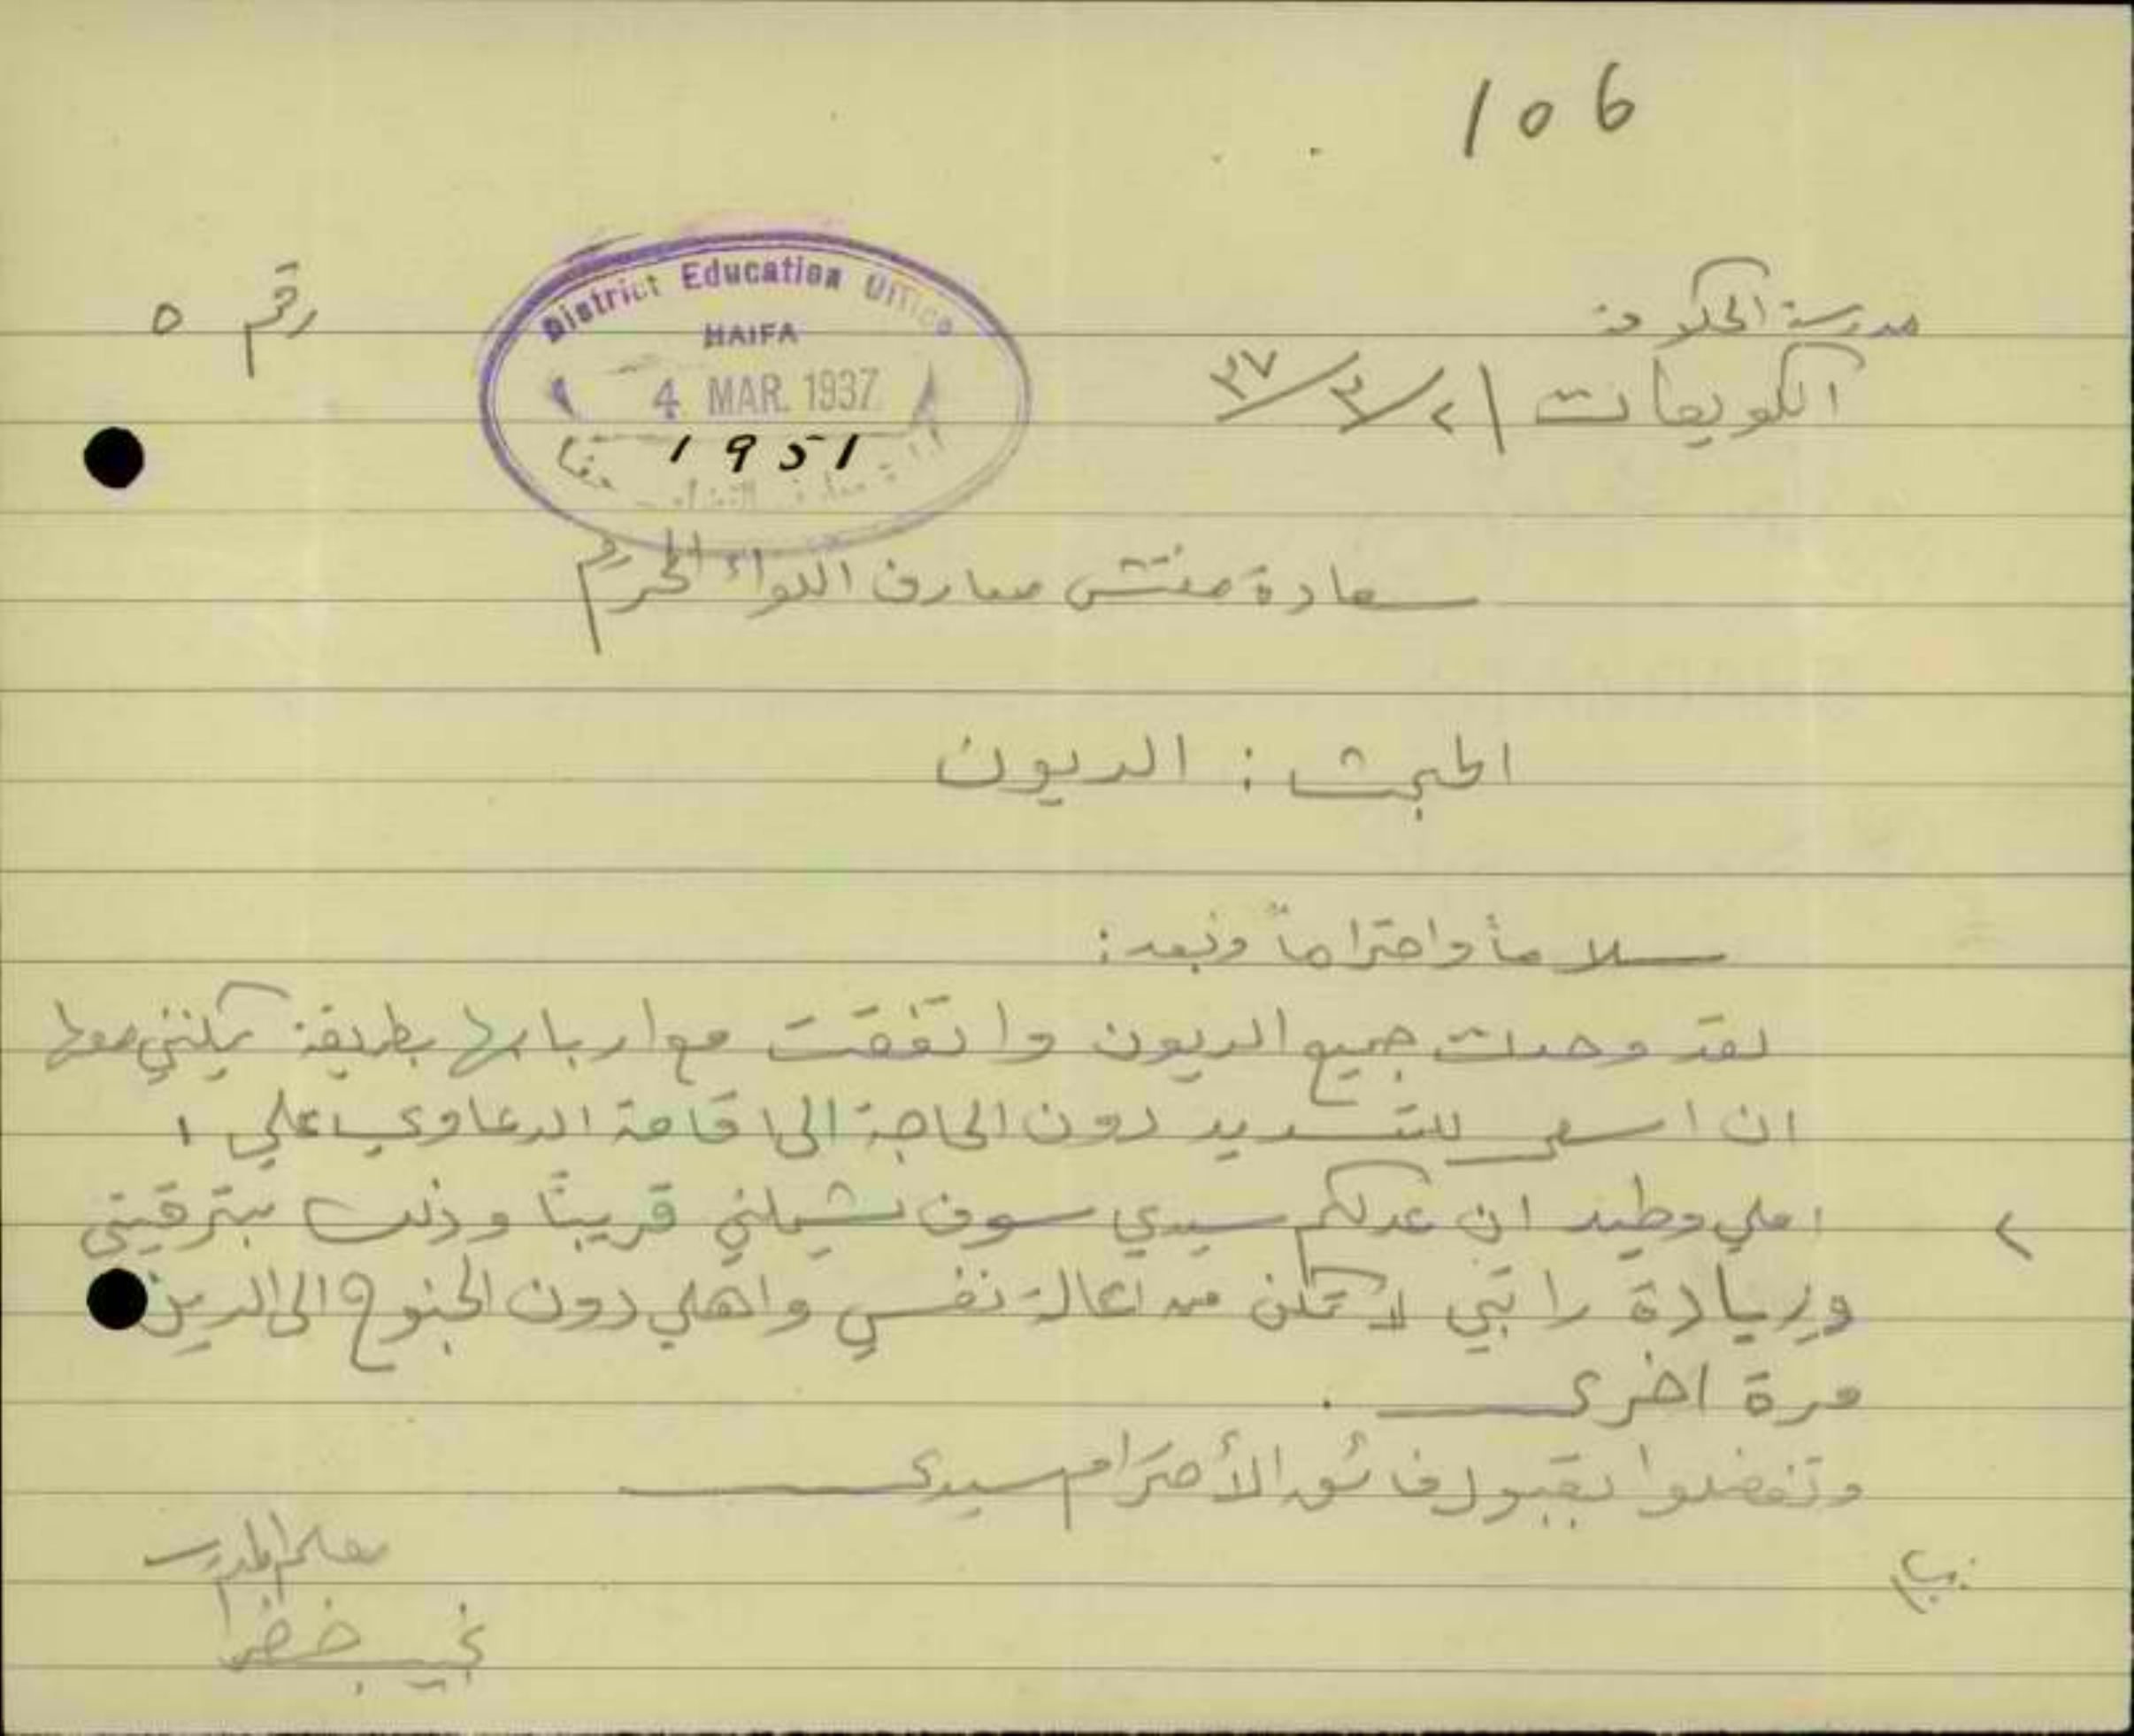 106
مدرسة الحكومة
رقم ٥
District Education Office
HAIFA
4 MAR. 1937
1951
الكويعات ٢/٣/٣٧
سعادة مفتش معارف اللواء المحترم
المبحث : الديون
سلاماً واحتراماً وبعد :
لقد وحدت جميع الديون واتفقت مع اربابها بطريقة يمكنني معها
ان اسعى للتسديد دون الحاجة الى اقامة الدعاوي علي .
٢ املي وطيد ان عدلكم سيدي سوف يشملني قريباً وذلك بترقيتي
وزيادة راتبي لاتمكن من اعالة نفسي واهلي دون الجنوح الى الدين
مرة اخرى .
وتفضلوا بقبول فائق الأحترام سيدي
معلم المدرسة
نجيب خضرا